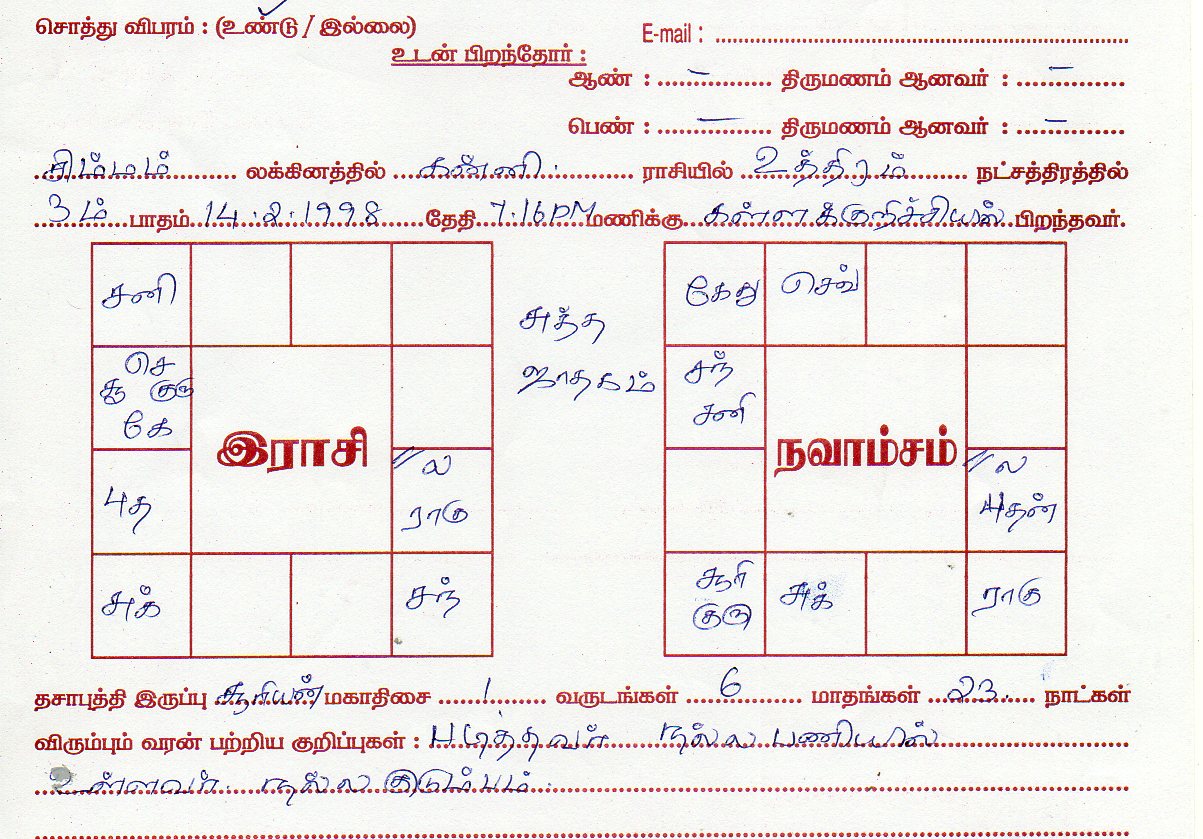 சொத்து விபரம் : (உண்டு / இல்லை)
E-mail :
உடன் பிறந்தோர் :
ஆண் : – திருமணம் ஆனவர் : –
பெண் : – திருமணம் ஆனவர் : –
சிம்மம் லக்கினத்தில் கன்னி ராசியில் உத்திரம் நட்சத்திரத்தில்
3ம் பாதம் 14.2.1998 தேதி 7.16PM மணிக்கு கள்ளக்குறிச்சியில் பிறந்தவர்.
சனி
செ
சூ குரு
கே
இராசி
ல
ராகு
புத
சுக்
சந்
சுத்த
ஜாதகம்
கேது செவ்
சந்
சனி
நவாம்சம்
ல
புதன்
சூரி
குரு
சுக்
ராகு
தசாபுத்தி இருப்பு சூரியன் மகாதிசை 1 வருடங்கள் 6 மாதங்கள் 23 நாட்கள்
விரும்பும் வரன் பற்றிய குறிப்புகள் : படித்தவர் நல்ல பணியில்
உள்ளவர். நல்ல குடும்பம்.